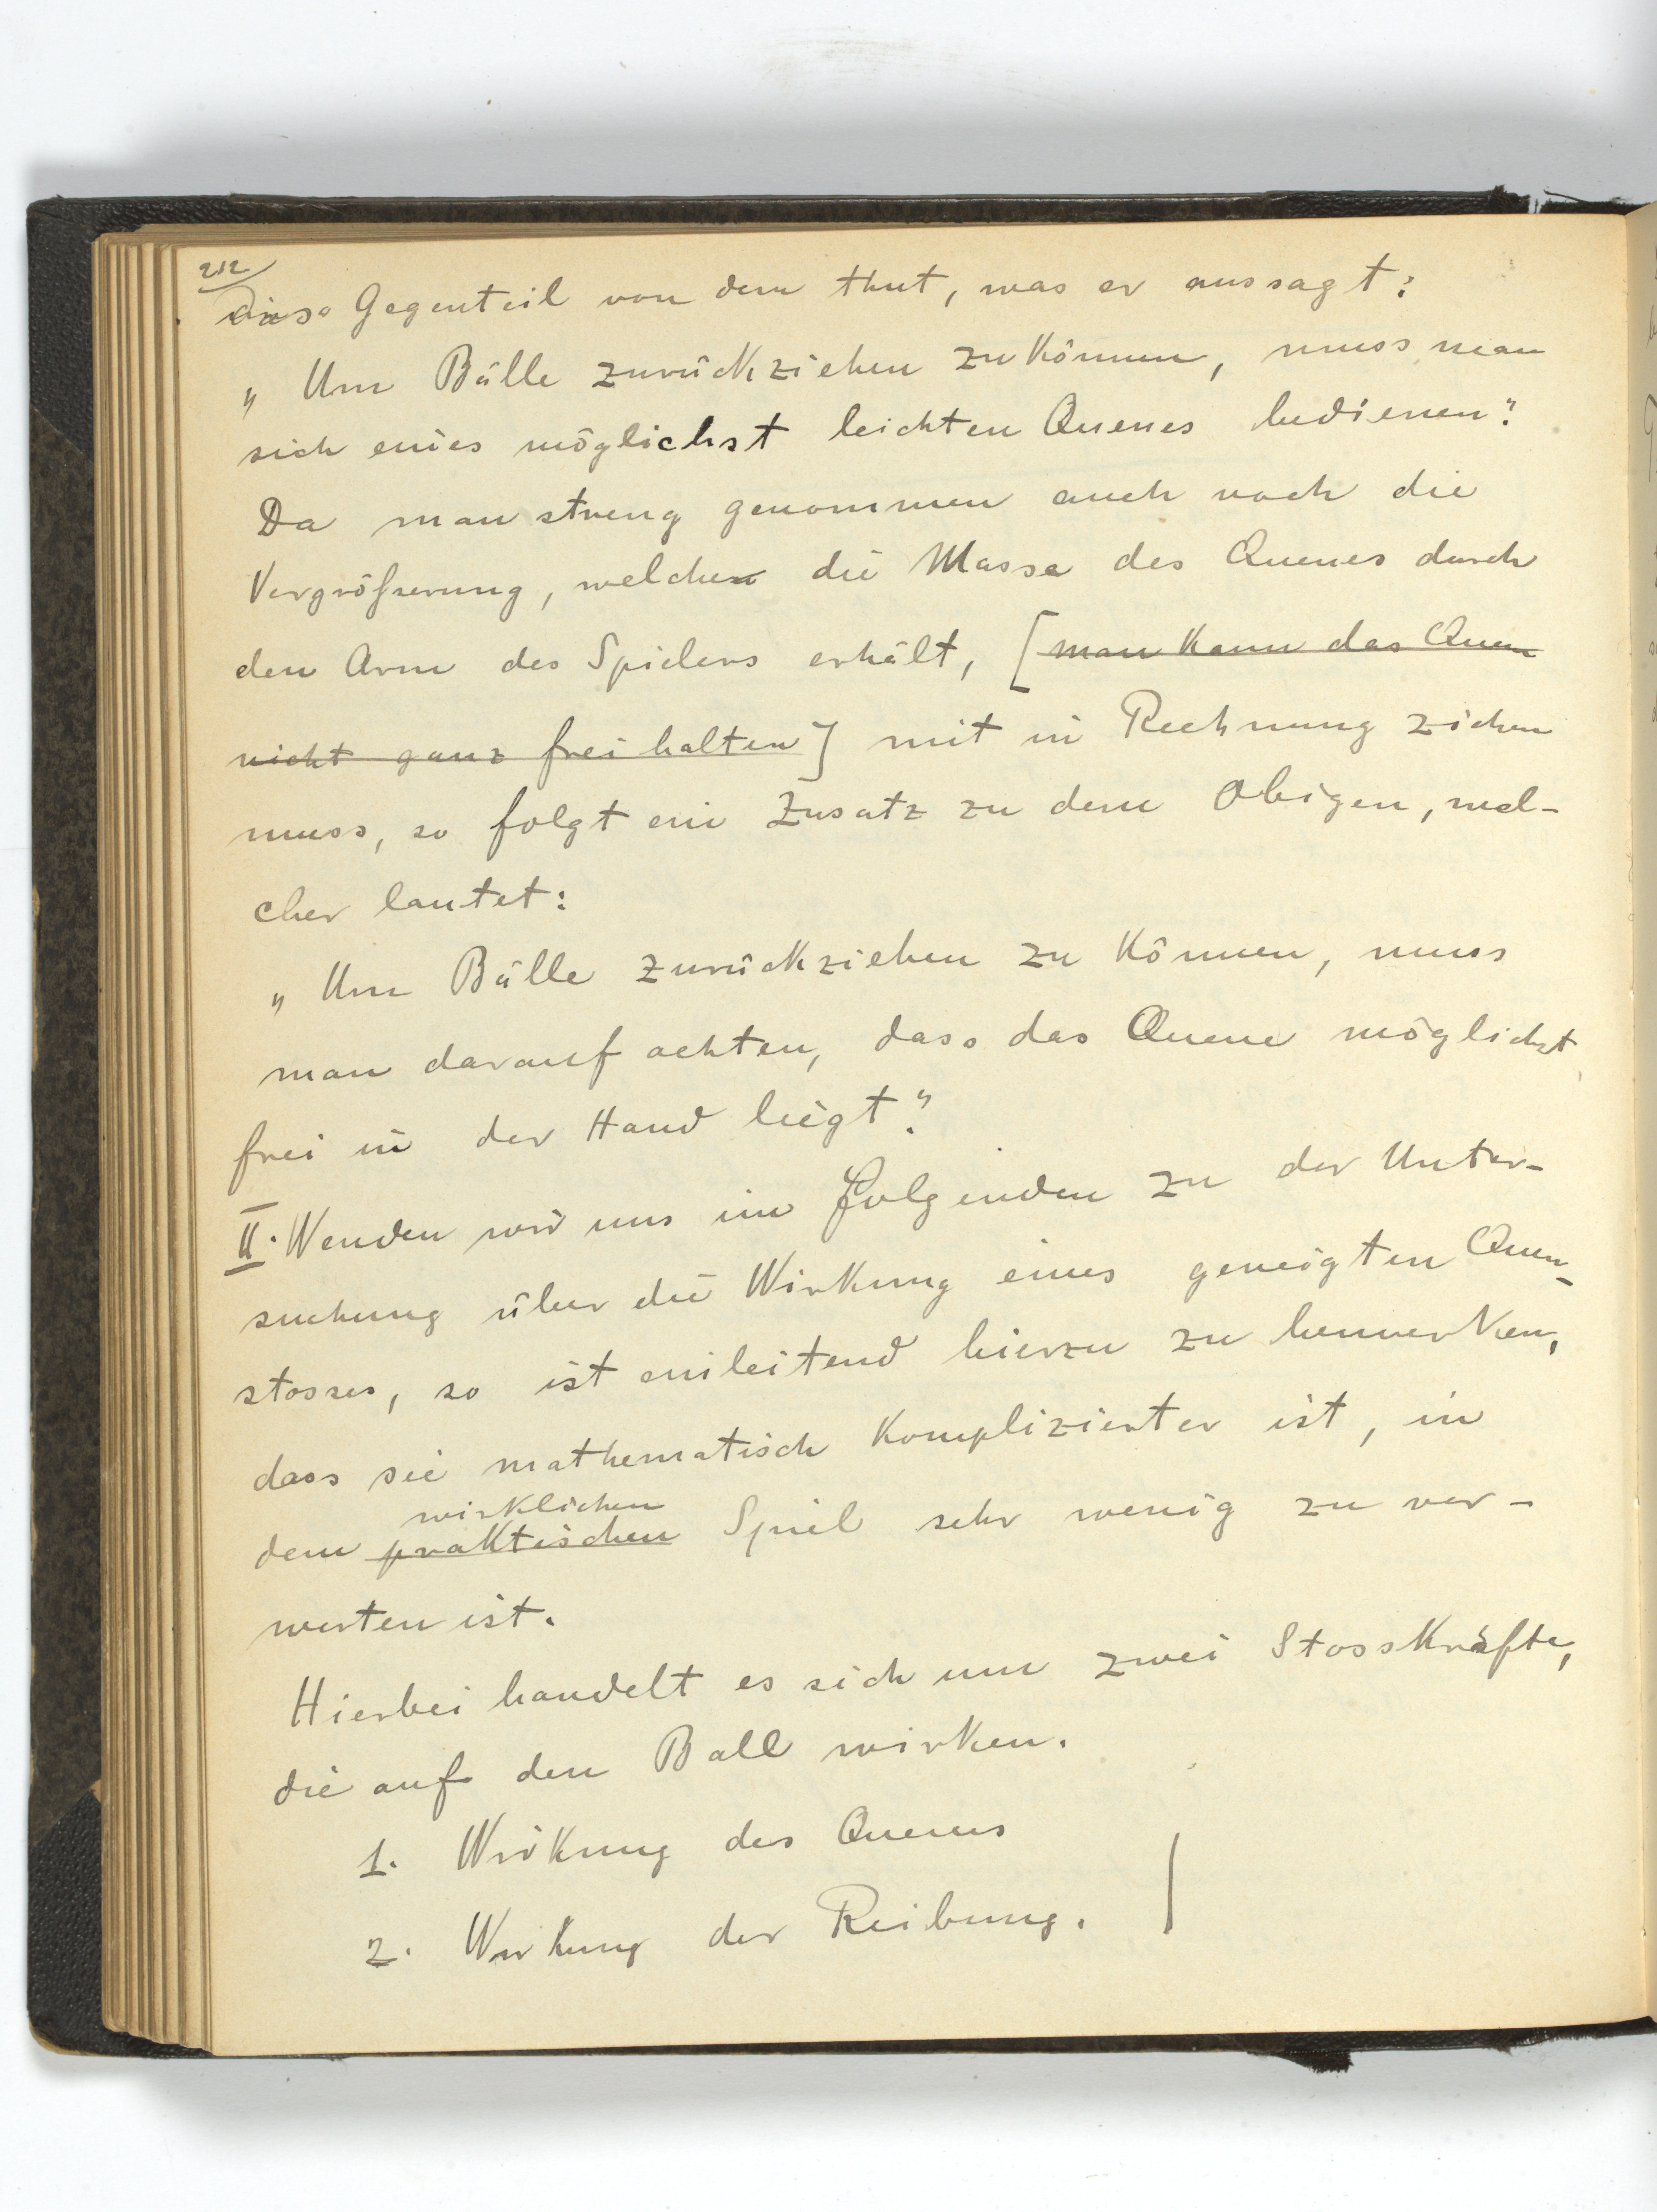 212
dieso Gegenteil von dem thut, was er aussagt:
„Um Bälle zurückziehen zu können, muss man
sich eines möglichst leichten Queues bedienen."
Da man streng genommen auch noch die
Vergrößerung, welche die Masse des Queues durch
den Arm des Spielers erhält, [man kann das Queue
nicht ganz frei halten] mit in Rechnung ziehen
muss, so folgt ein Zusatz zu dem Obigen, wel-
cher lautet:
„Um Bälle zurückziehen zu können, muss
man darauf achten, dass das Queue möglichst
frei in der Hand liegt."
II. Wenden wir uns im folgenden zu der Unter-
suchung über die Wirkung eines geneigten Queu-
stosses, so ist einleitend hierzu zu bemerken,
dass sie mathematisch komplizierter ist, in
wirklichen
dem praktischen Spiel sehr wenig zu ver-
werten ist.
Hierbei handelt es sich um zwei Stosskräfte,
die auf den Ball wirken.
1. Wirkung des Queues
2. Wirkung der Reibung.